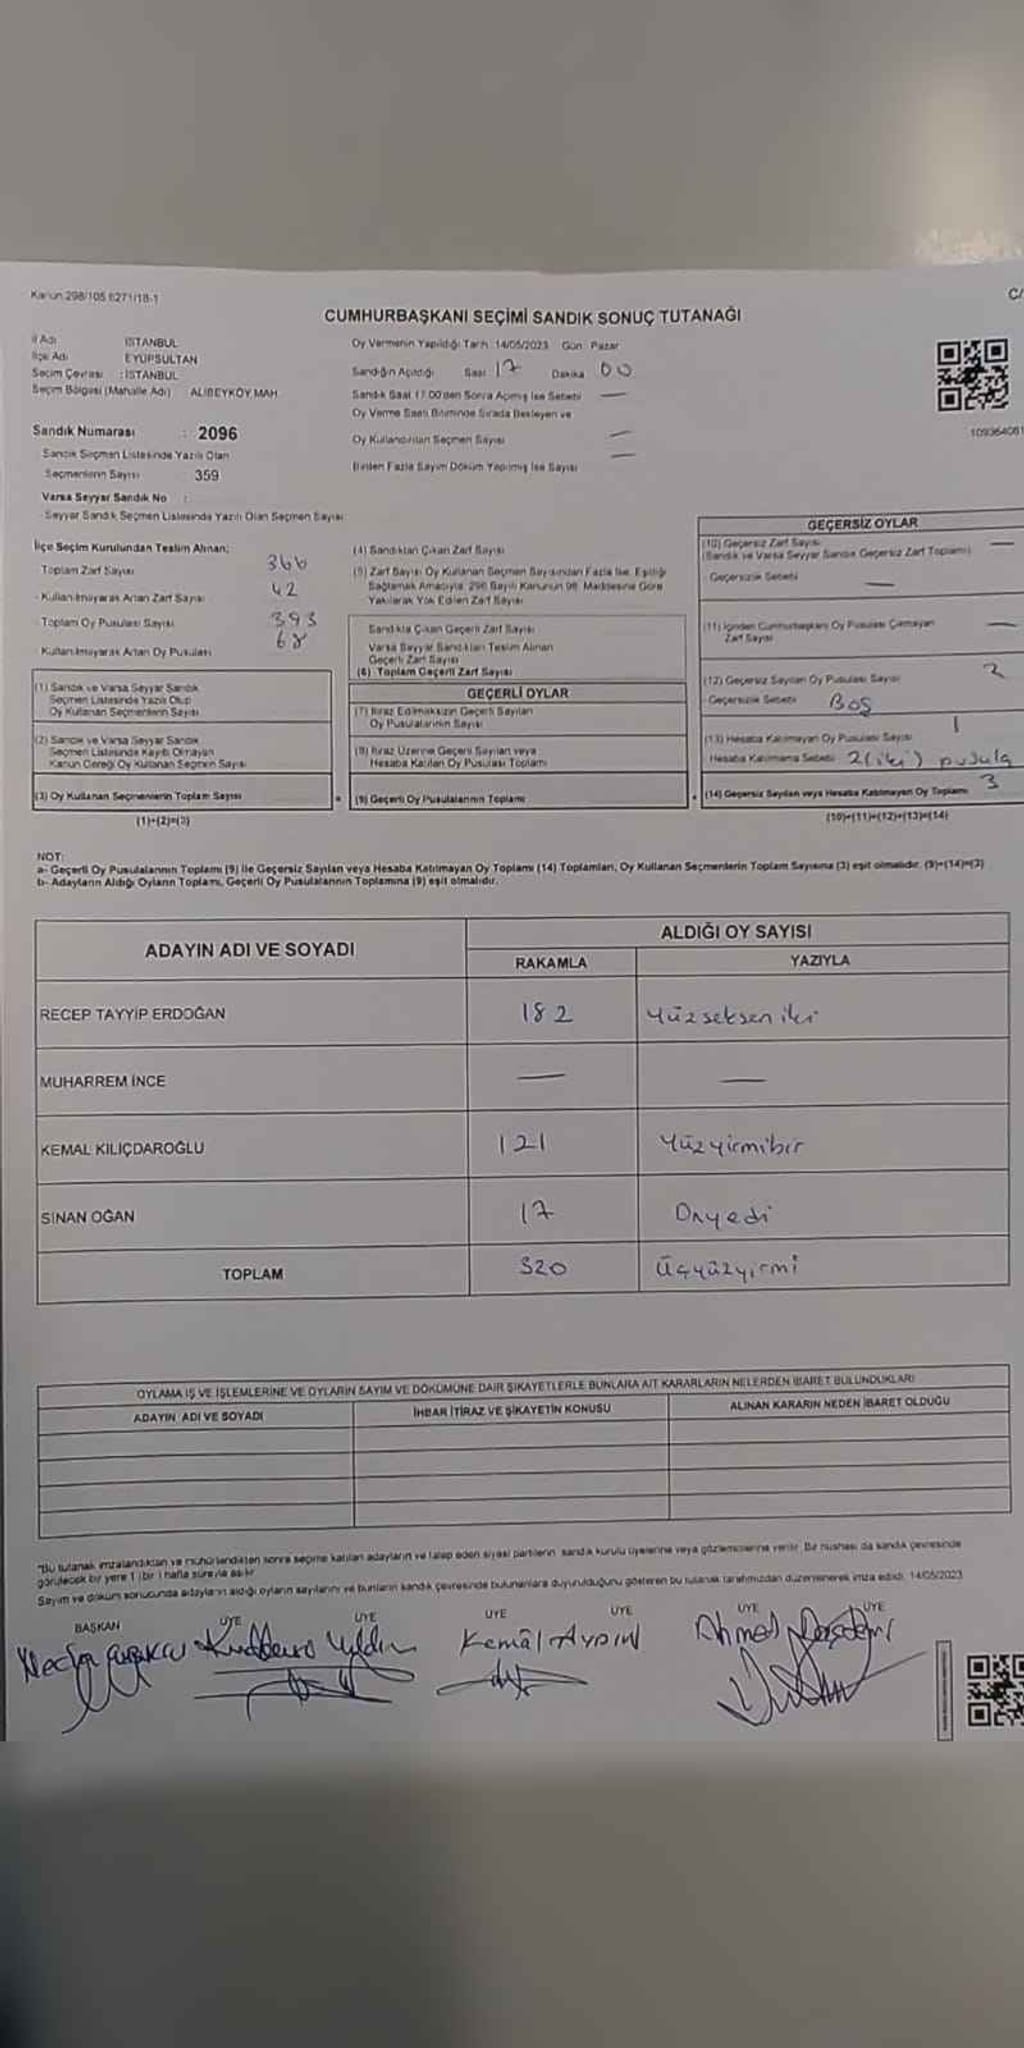 Kanun 298/105 6271/18-1
C/
CUMHURBAŞKANI SEÇİMİ SANDIK SONUÇ TUTANAĞI
İl Adı : İSTANBUL
İlçe Adı : EYÜPSULTAN
Seçim Çevresi : İSTANBUL
Seçim Bölgesi (Mahalle Adı) ALİBEYKÖY MAH.
Oy Vermenin Yapıldığı Tarih: 14/05/2023 Gün: Pazar
Sandığın Açıldığı Saat 17 Dakika 00
Sandık Saat 17.00'den Sonra Açılmış İse Sebebi —
Oy Verme Saati Bitiminde Sırada Bekleyen ve
Oy Kullandırılan Seçmen Sayısı —
Birden Fazla Sayım Döküm Yapılmış İse Sayısı —
Sandık Numarası : 2096
Sandık Seçmen Listesinde Yazılı Olan
Seçmenlerin Sayısı 359
Varsa Seyyar Sandık No :
Seyyar Sandık Seçmen Listesinde Yazılı Olan Seçmen Sayısı:
İlçe Seçim Kurulundan Teslim Alınan;
Toplam Zarf Sayısı 366
Kullanılmayarak Artan Zarf Sayısı 42
Toplam Oy Pusulası Sayısı 393
Kullanılmayarak Artan Oy Pusulası 68
(1) Sandık ve Varsa Seyyar Sandık
Seçmen Listesinde Yazılı Olup
Oy Kullanan Seçmenlerin Sayısı
(2) Sandık ve Varsa Seyyar Sandık
Seçmen Listesinde Kayıtlı Olmayan
Kanun Gereği Oy Kullanan Seçmen Sayısı
(3) Oy Kullanan Seçmenlerin Toplam Sayısı
(1)+(2)=(3)
(4) Sandıktan Çıkan Zarf Sayısı
(5) Zarf Sayısı Oy Kullanan Seçmen Sayısından Fazla İse, Eşitliği
Sağlamak Amacıyla, 298 Sayılı Kanunun 98. Maddesine Göre
Yakılarak Yok Edilen Zarf Sayısı
Sandıkta Çıkan Geçerli Zarf Sayısı
Varsa Seyyar Sandıktan Teslim Alınan
Geçerli Zarf Sayısı
(6) Toplam Geçerli Zarf Sayısı
GEÇERLİ OYLAR
(7) İtiraz Edilmeksizin Geçerli Sayılan
Oy Pusulalarının Sayısı
(8) İtiraz Üzerine Geçerli Sayılan veya
Hesaba Katılan Oy Pusulası Toplamı
(9) Geçerli Oy Pusulalarının Toplamı
GEÇERSİZ OYLAR
(10) Geçersiz Zarf Sayısı —
(Sandık ve Varsa Seyyar Sandık Geçersiz Zarf Toplamı)
Geçersizlik Sebebi —
(11) İçinden Cumhurbaşkanı Oy Pusulası Çıkmayan
Zarf Sayısı —
(12) Geçersiz Sayılan Oy Pusulası Sayısı 2
Geçersizlik Sebebi Boş
(13) Hesaba Katılmayan Oy Pusulası Sayısı 1
Hesaba Katılmama Sebebi 2(iki) pusula
(14) Geçersiz Sayılan veya Hesaba Katılmayan Oy Toplamı 3
(10)+(11)+(12)+(13)=(14)
NOT:
a- Geçerli Oy Pusulalarının Toplamı (9) ile Geçersiz Sayılan veya Hesaba Katılmayan Oy Toplamı (14) Toplamları, Oy Kullanan Seçmenlerin Toplam Sayısına (3) eşit olmalıdır. (9)+(14)=(3)
b- Adayların Aldığı Oyların Toplamı, Geçerli Oy Pusulalarının Toplamına (9) eşit olmalıdır.
ADAYIN ADI VE SOYADI
ALDIĞI OY SAYISI
RAKAMLA YAZIYLA
RECEP TAYYİP ERDOĞAN 182 Yüzseksen iki
MUHARREM İNCE — —
KEMAL KILIÇDAROĞLU 121 Yüzyirmibir
SİNAN OĞAN 17 Onyedi
TOPLAM 320 Üçyüzyirmi
OYLAMA İŞ VE İŞLEMLERİNE VE OYLARIN SAYIM VE DÖKÜMÜNE DAİR ŞİKAYETLERLE BUNLARA AİT KARARLARIN NELERDEN İBARET BULUNDUKLARI
ADAYIN ADI VE SOYADI İHBAR İTİRAZ VE ŞİKAYETİN KONUSU ALINAN KARARIN NEDEN İBARET OLDUĞU
"Bu tutanak imzalandıktan ve mühürlendikten sonra seçime katılan adayların ve talep eden siyasi partilerin sandık kurulu üyelerine veya gözlemcilerine verilir. Bir nüshası da sandık çevresinde
görülecek bir yere 1 (bir) hafta süreyle asılır.
Sayım ve döküm sonucunda adayların aldığı oyların sayılarını ve bunların sandık çevresinde bulunanlara duyurulduğunu gösteren bu tutanak tarafımızdan düzenlenerek imza edildi. 14/05/2023
BAŞKAN ÜYE ÜYE ÜYE ÜYE ÜYE ÜYE
Kemâl AYDIN Ahmed